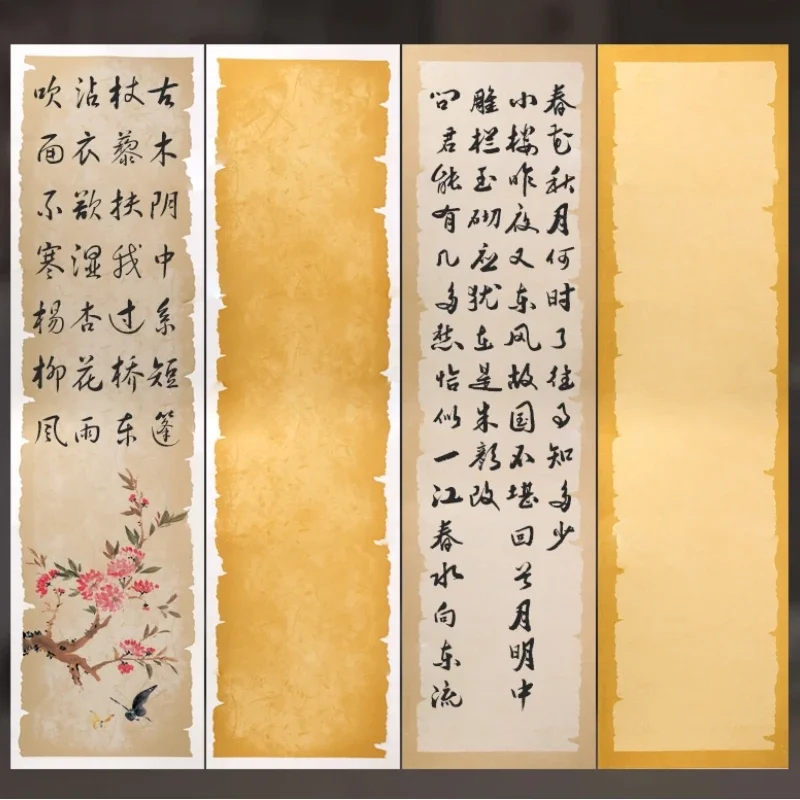 春花秋月何时了往事知多少
小楼昨夜又东风故国不堪回首月明中
雕栏玉砌应犹在是朱颜改
问君能有几多愁恰似一江春水向东流
古木阴中系短篷
杖藜扶我过桥东
沾衣欲湿杏花雨
吹面不寒杨柳风